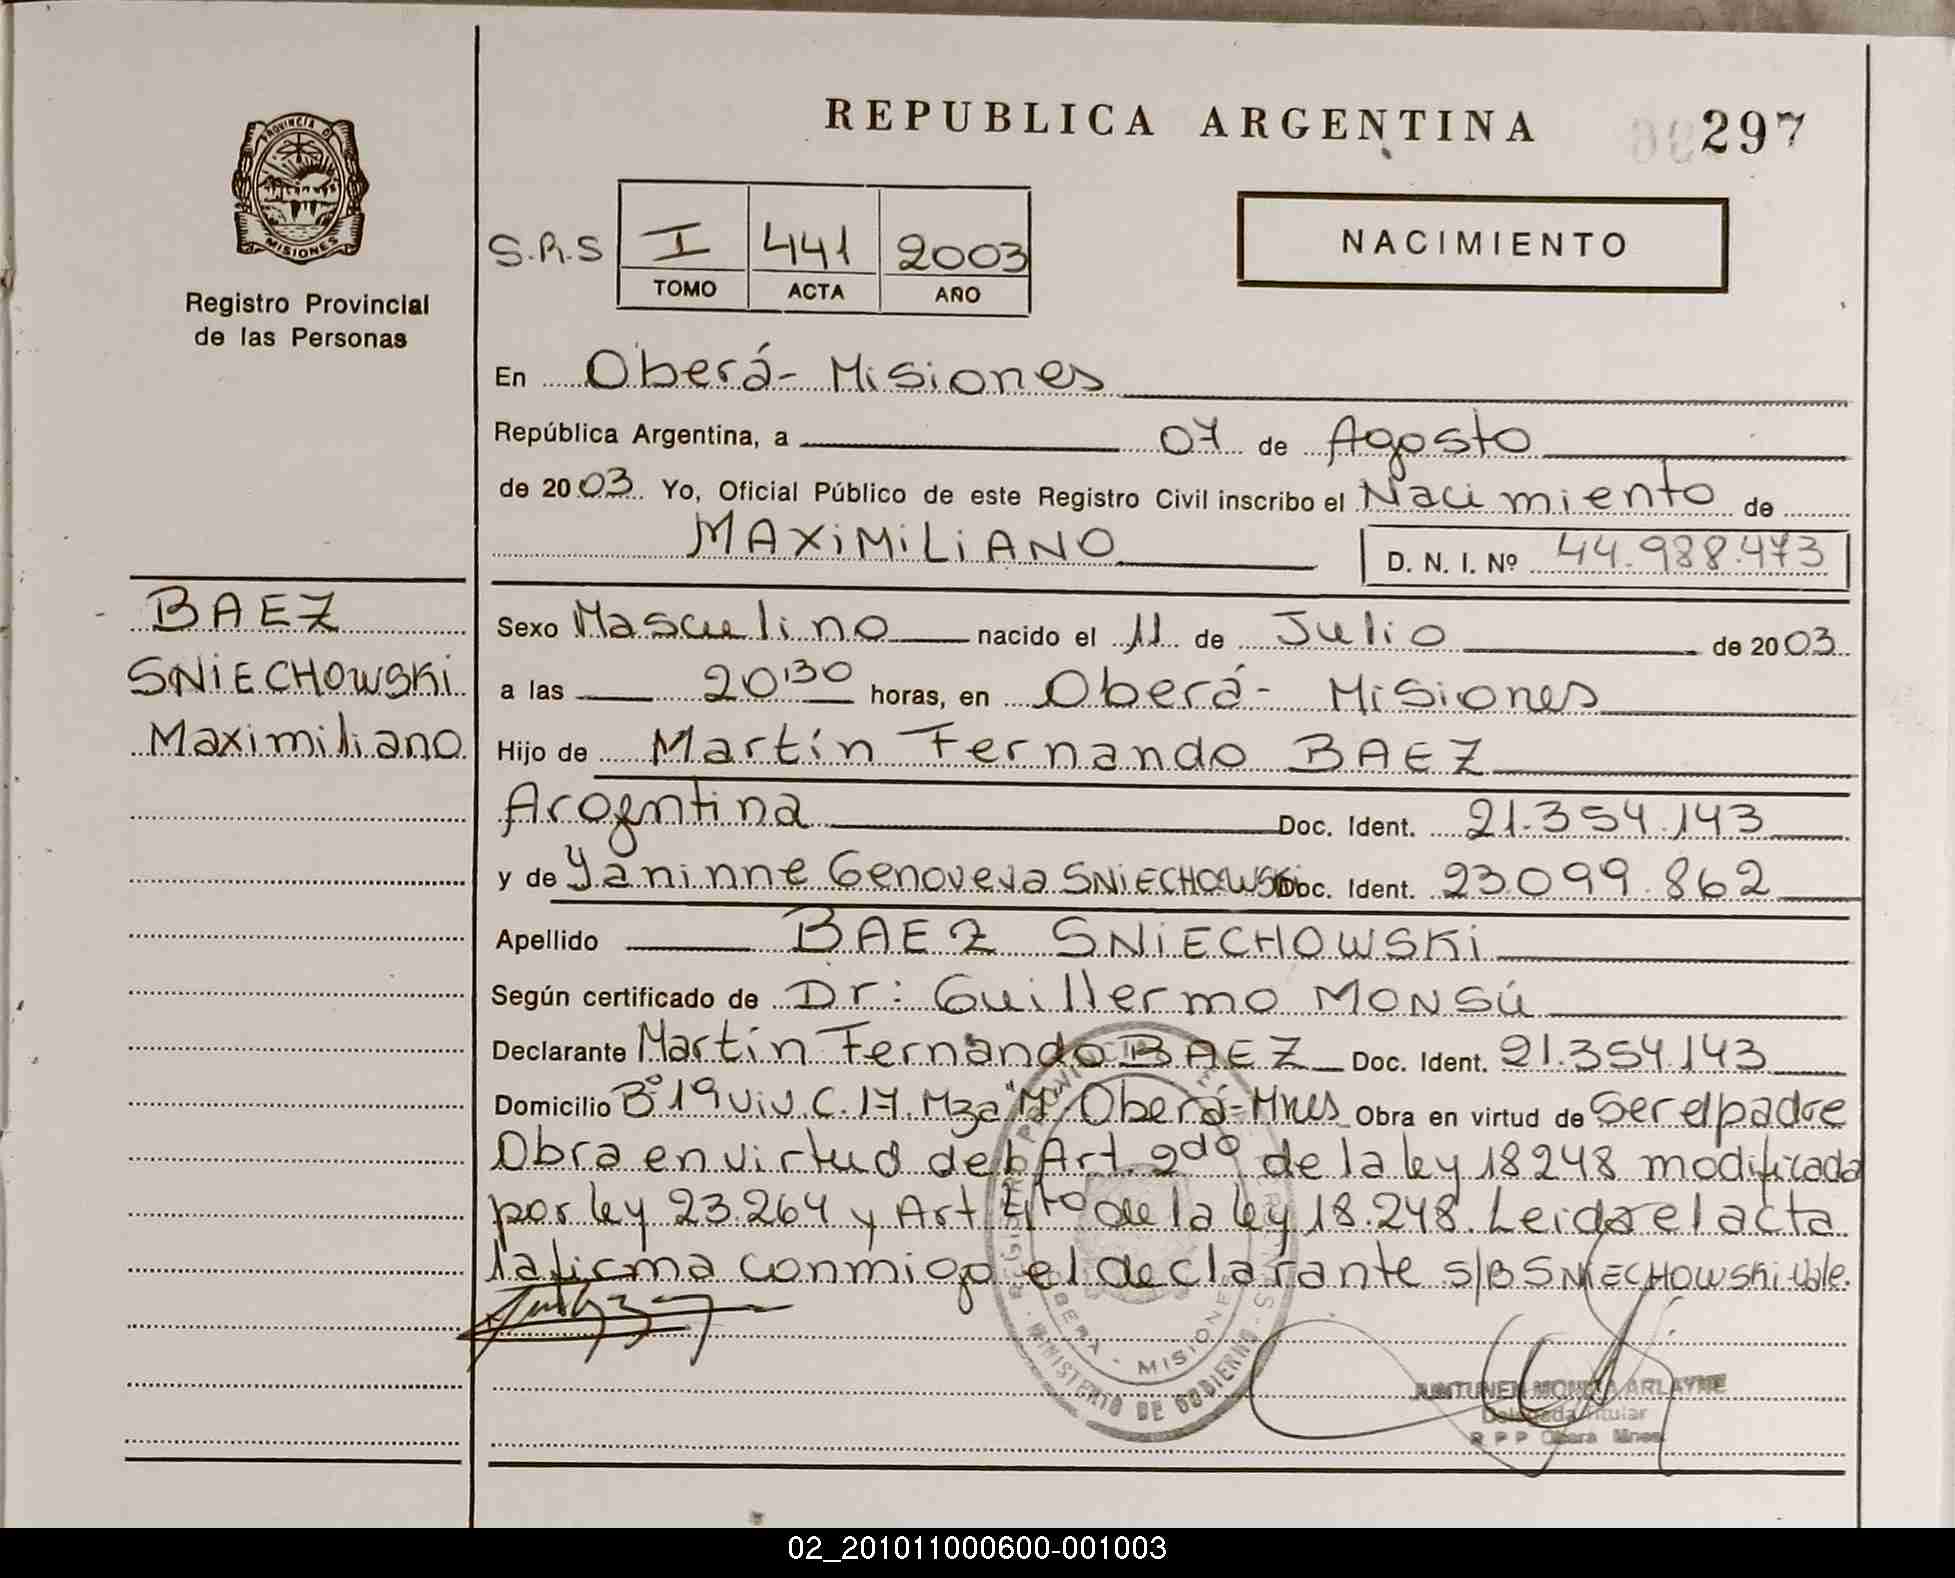 REPUBLICA ARGENTINA
297
PROVINCIA D
MISIONES
Registro Provincial
de las Personas
S.R.S
I 441 2003
TOMO ACTA AÑO
NACIMIENTO
En Oberá- Misiones
República Argentina, a 07 de Agosto
de 2003 Yo, Oficial Público de este Registro Civil inscribo el Nacimiento de
MAXiMiLiANO
D. N. I. Nº 44.988.473
BAEZ
SNiECHOWSKi
Maximiliano
Sexo Masculino nacido el 11 de Julio de 2003
a las 20'30 horas, en Oberá- Misiones
Hijo de Martín Fernando BAEZ
Arogentina Doc. Ident. 21.354.143
y de Yaninne Genoveva SNiECHOWSKi Doc. Ident. 23.099.862
Apellido BAEZ SNiECHOWSKi
Según certificado de Dr: Guillermo MONSÚ
Declarante Martín Fernando BAEZ Doc. Ident. 21.354.143
Domicilio Bº 19 Viv C. 17. Mza "M" Oberá-Mnes Obra en virtud de Ser el padre
Obra en virtud del Art. 2do de la ley 18248 modificada
por ley 23.264 y Art. de la ley 18.248. Leida el acta
la firma conmigo el declarante s/B SNiECHOWSKi Vale.
OBERA - MISIONES
MINISTERIO DE GOBIERNO
ARLAYNE
Delegada Titular
R P P Obera Mnes
02_201011000600-001003